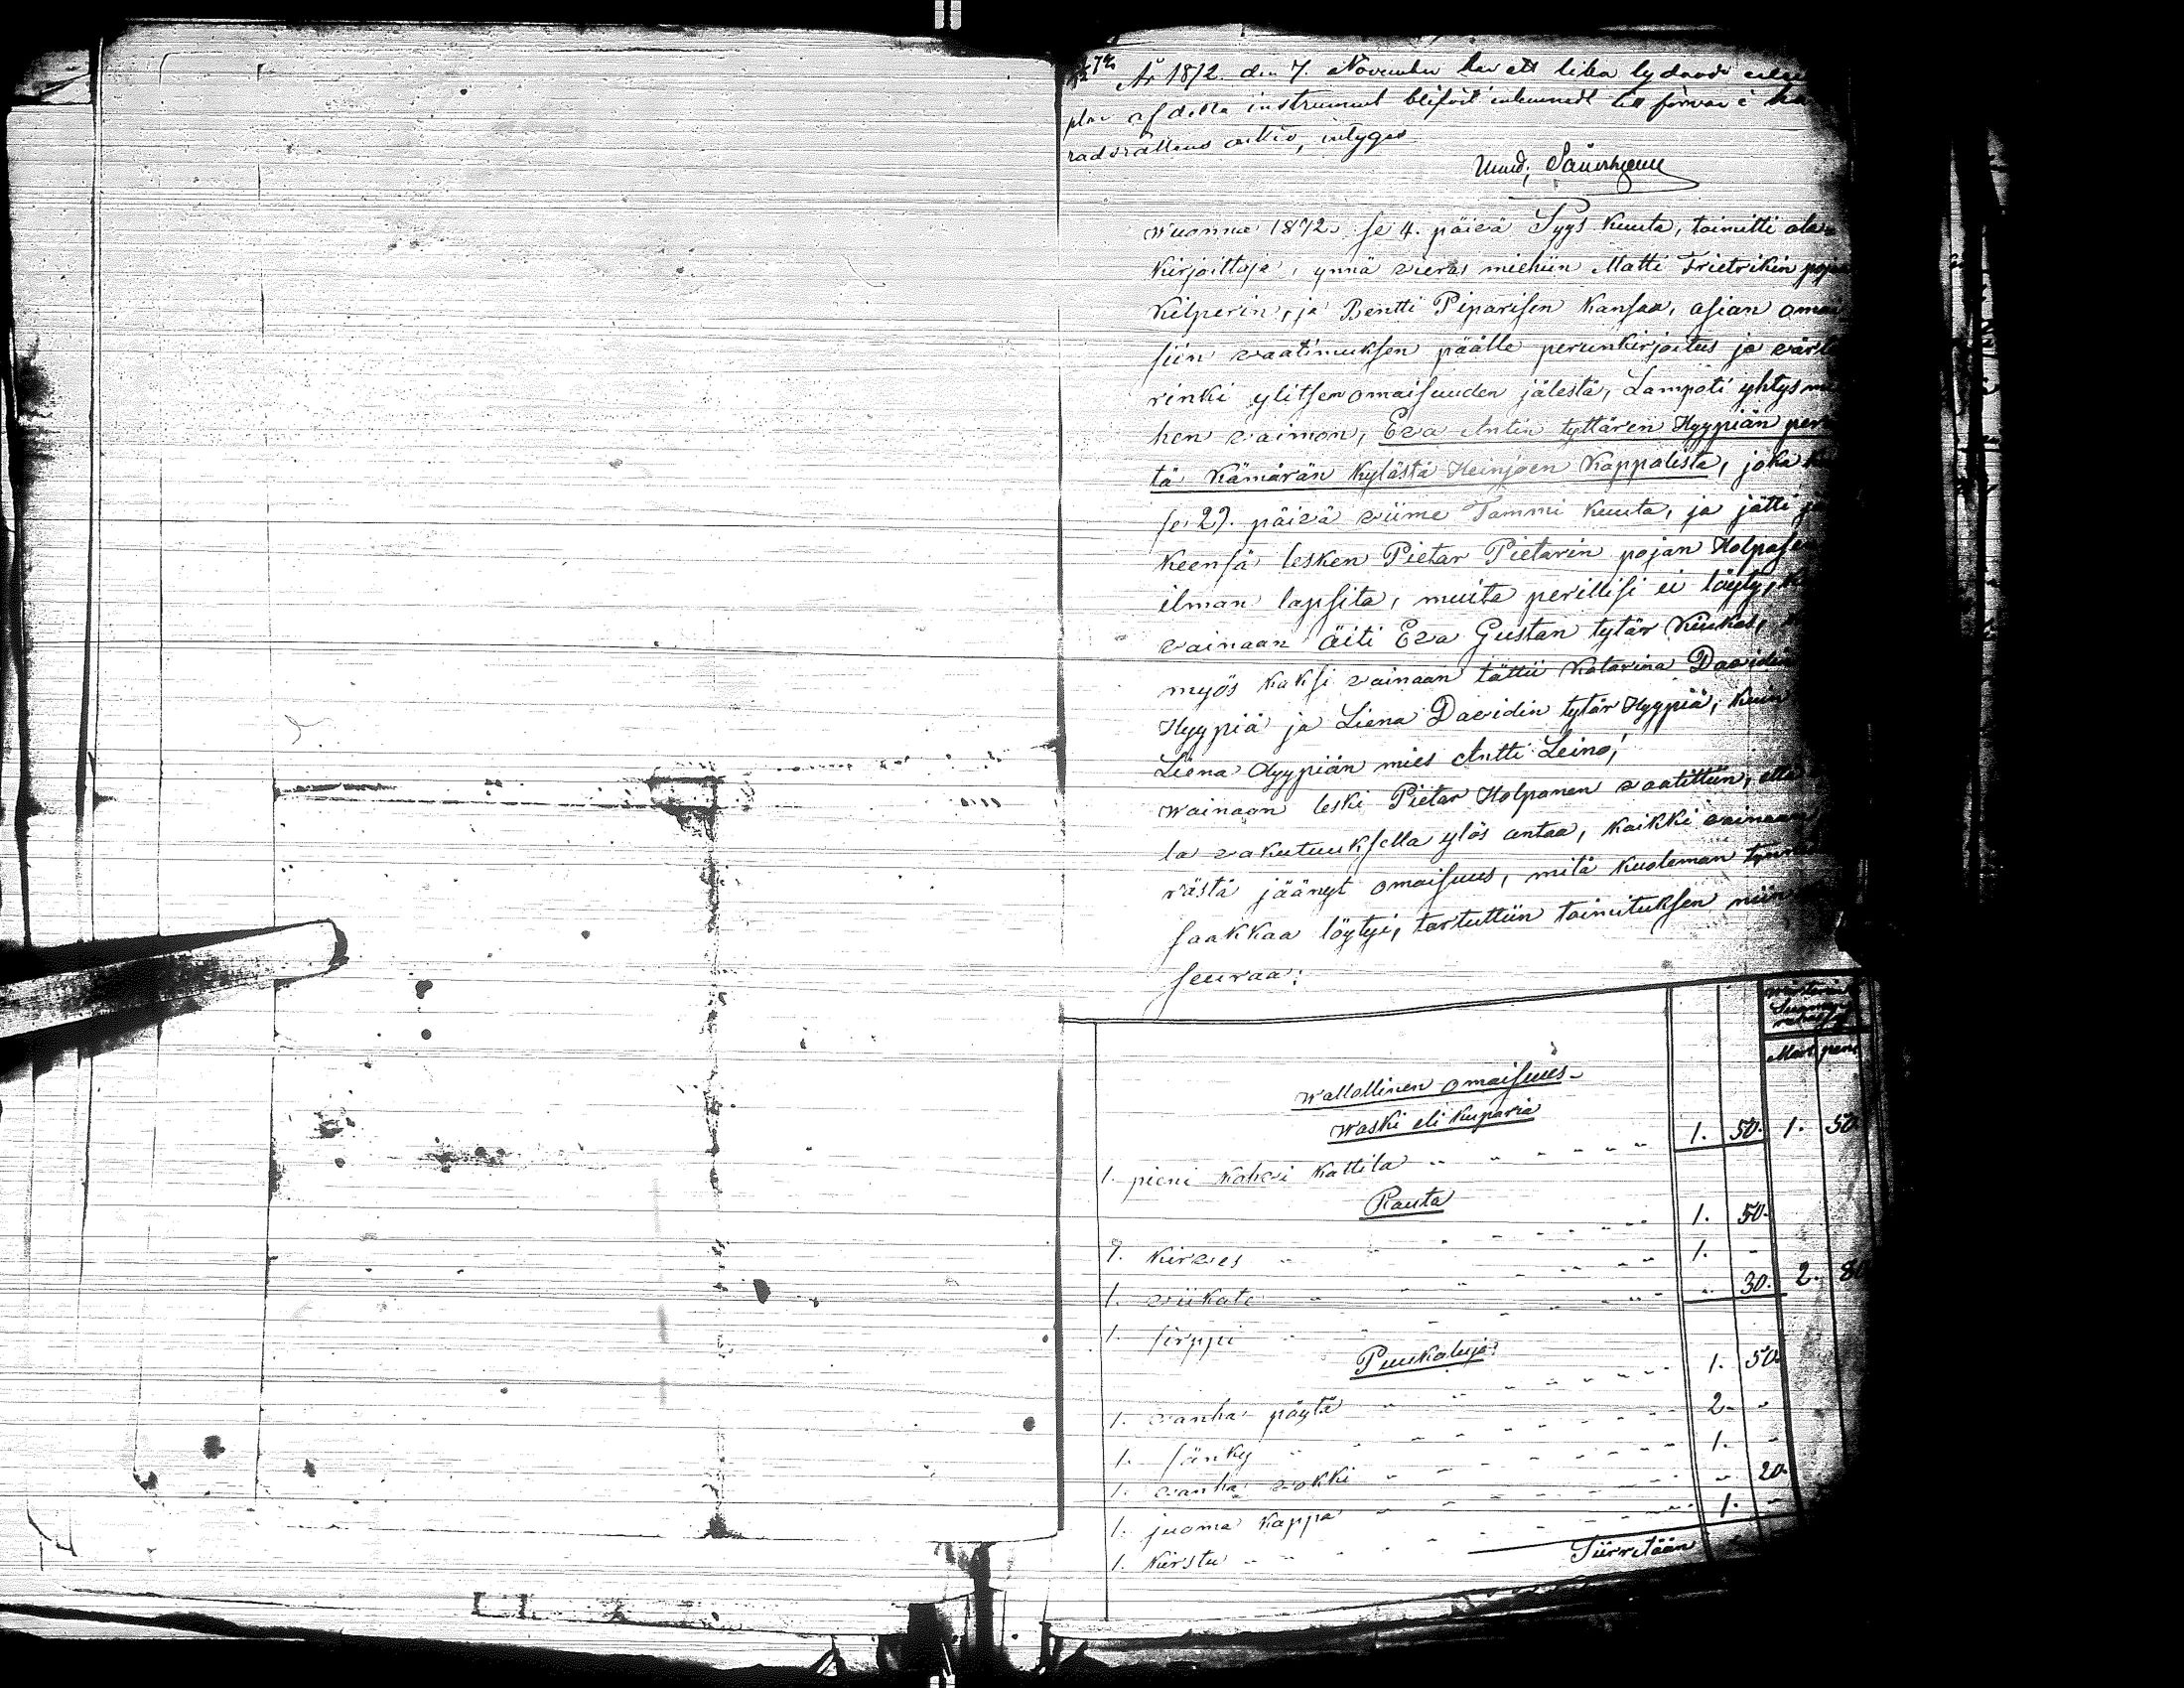 År 1872. den 7. November har ett lika lydande
plar af detta instrument blifvit inlemnadt till förvar i
radsrättens arkiv, intygas
wuonna 1872. se 4. päivä Syys kuuta, toimitti
kirjoittaja, ynnä vieras miehiin Matti Frietrikin
Kilperin, ja Bentti Piparisen kansaa, asian
siin vaatimuksen päälle perunkirjoitus ja
rinki ylitsen omaisuuden jälestä, Lampoti
hen vaimon, Eva Antin tyttären Hyypiän
tä Kämärän kylästä Heinjoen Kappalista, joka
se 29. päivä viime Tammi kuuta, ja jätti
keensä lesken Pietar Pietarin pojan
ilman lapsita, muita perillisi ei löyty,
vainaan äiti Eva Gustan tytär
myös kaksi vainaan tättii Katarina
Hyypiä ja Liena Davidin tytär Hyypiä, kuin
Liena Hyypiän mies Antti Leino,
wainaan leski Pietar Holpanen vaatittiin, että
la vakutuuksella ylös antaa, kaikki vainaan
rästä jäänyt omaisuus, mitä kuoleman
saakkaa löytyi, tartuttiin toimituksen niin
seuraa:
Mark penni
wallollinen omaisuus
waski eli kuparia
1. pieni kahvi kattila 1. 50. 1. 50.
Rauta
1. kirves 1. 50.
1. viikate 1. -
1. sirppi " 30. 2. 80
Puukaluja
1. vanha pöytä 1. 50.
1. sänky 2. "
1. vanha vokki 1. "
1. juoma kappa " 20.
1. kirstu 1. "
Siirretään